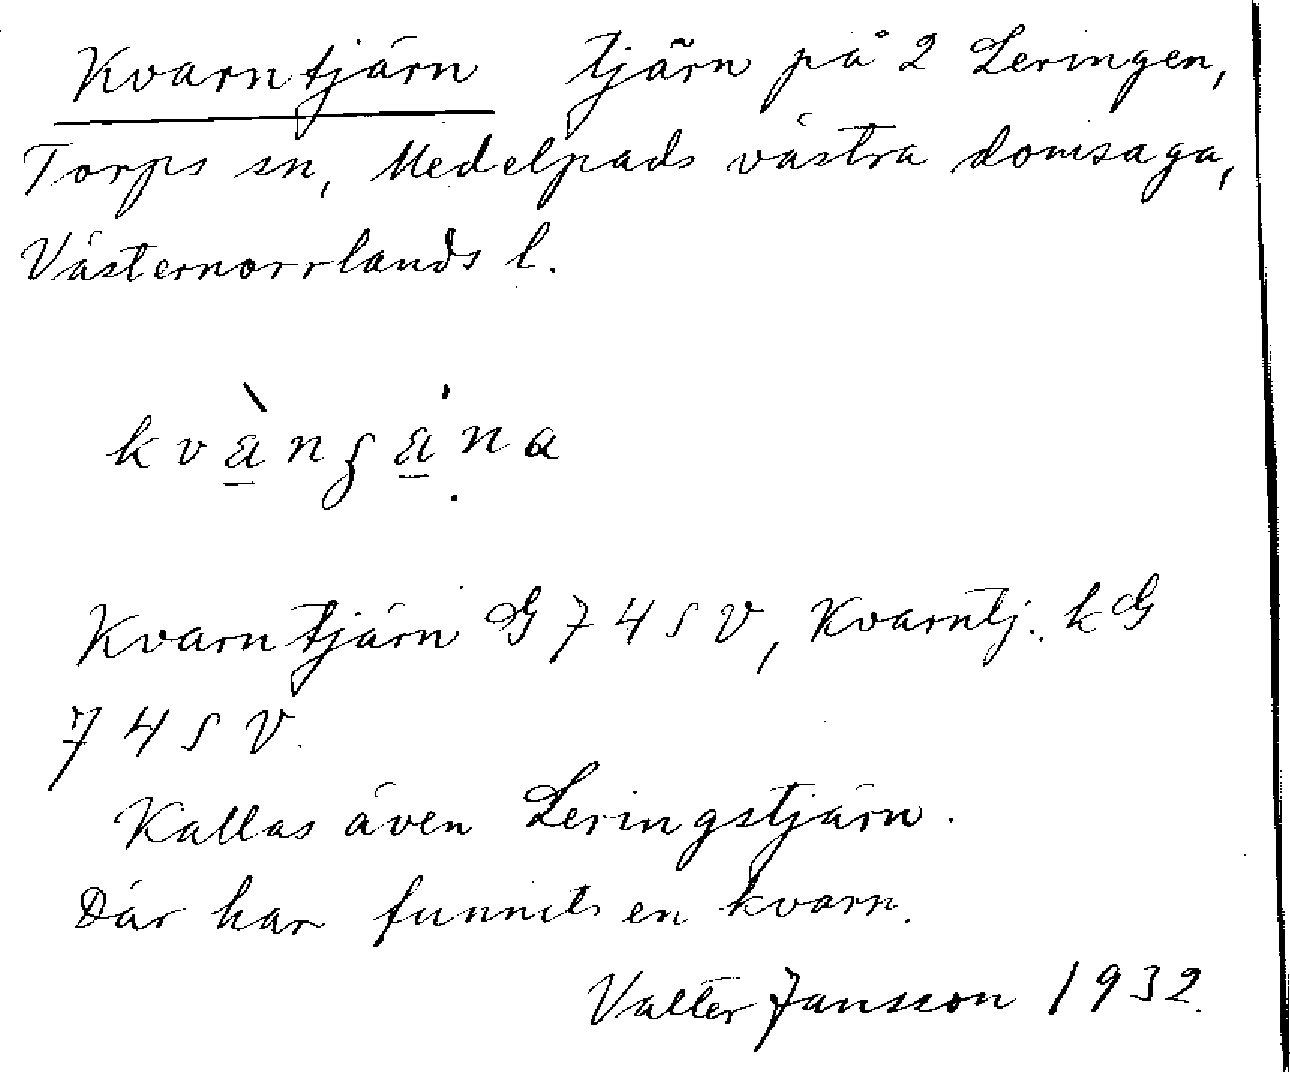 Kvarntjärn tjärn på 2 Leringen,
Torps sn, Medelpads västra domsaga,
Västernorrlands l.
Kvarntjärn G 74 SV, Kvarntj. kG
74 SV.
Kallas även Leringstjärn.
Där har funnits en kvarn.
Valter Jansson 1932.